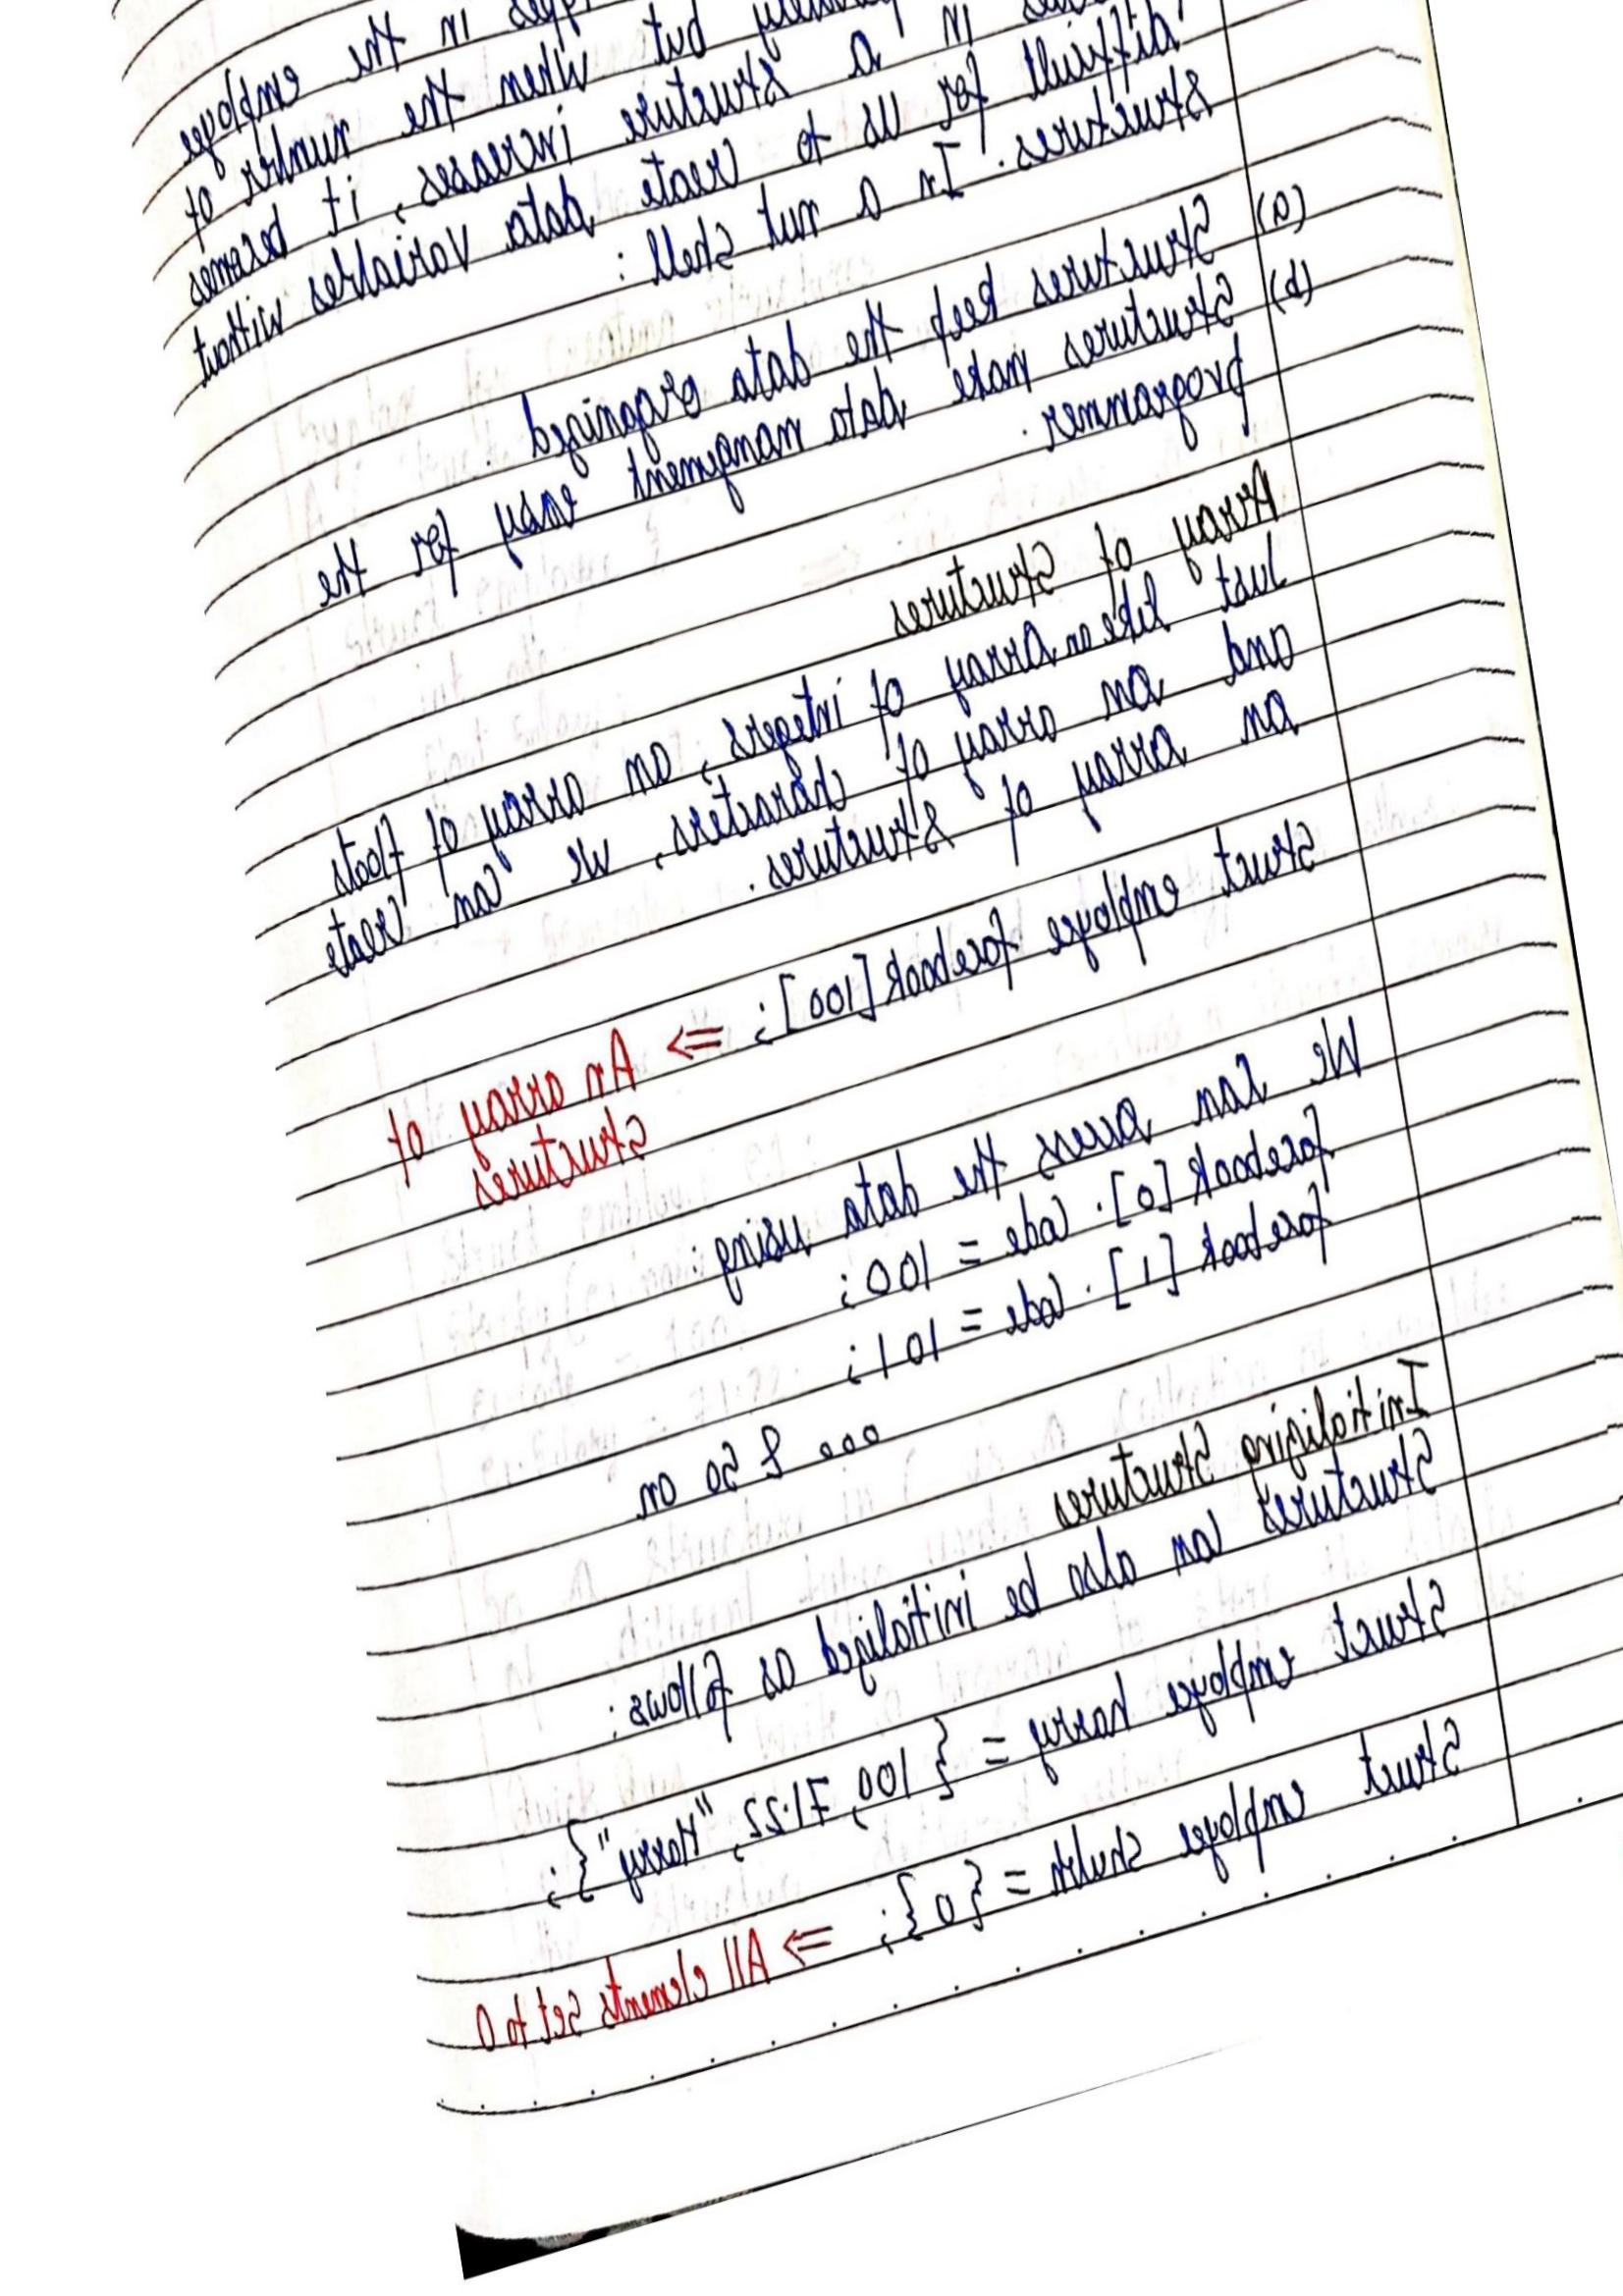 types in the employee
in but when the number of
in a structure increases, it becomes
difficult for us to create data variables without
structures. In a nut shell :
(a) Structures keep the data organized.
(b) Structures make data mangement easy for the
programmer.
Array of Structures
Just like an array of integers, an array of floats
and an array of characters, we can create
an array of structures.
Struct employee facebook [100]; => An array of
structures
We can access the data using:
facebook [0]. code = 100;
facebook [1]. code = 101;
... & so on
Initializing Structures
Structures can also be initialized as follows:
Struct employee harry = {100, 71.22, "Harry"};
Struct employee shubh = {0}; => All elements set to 0